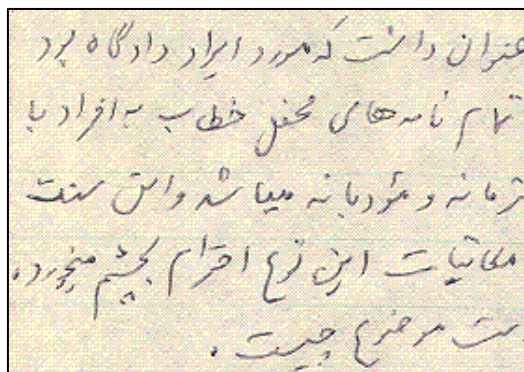 عنوان داشت که مورد ایراد دادگاه بود
تمام نامه‌های محفل خطاب به افراد با
و مؤدبانه میباشد و این سنت
مکاتبات این نوع احترام بچشم میخورد.
موضوع چیست.